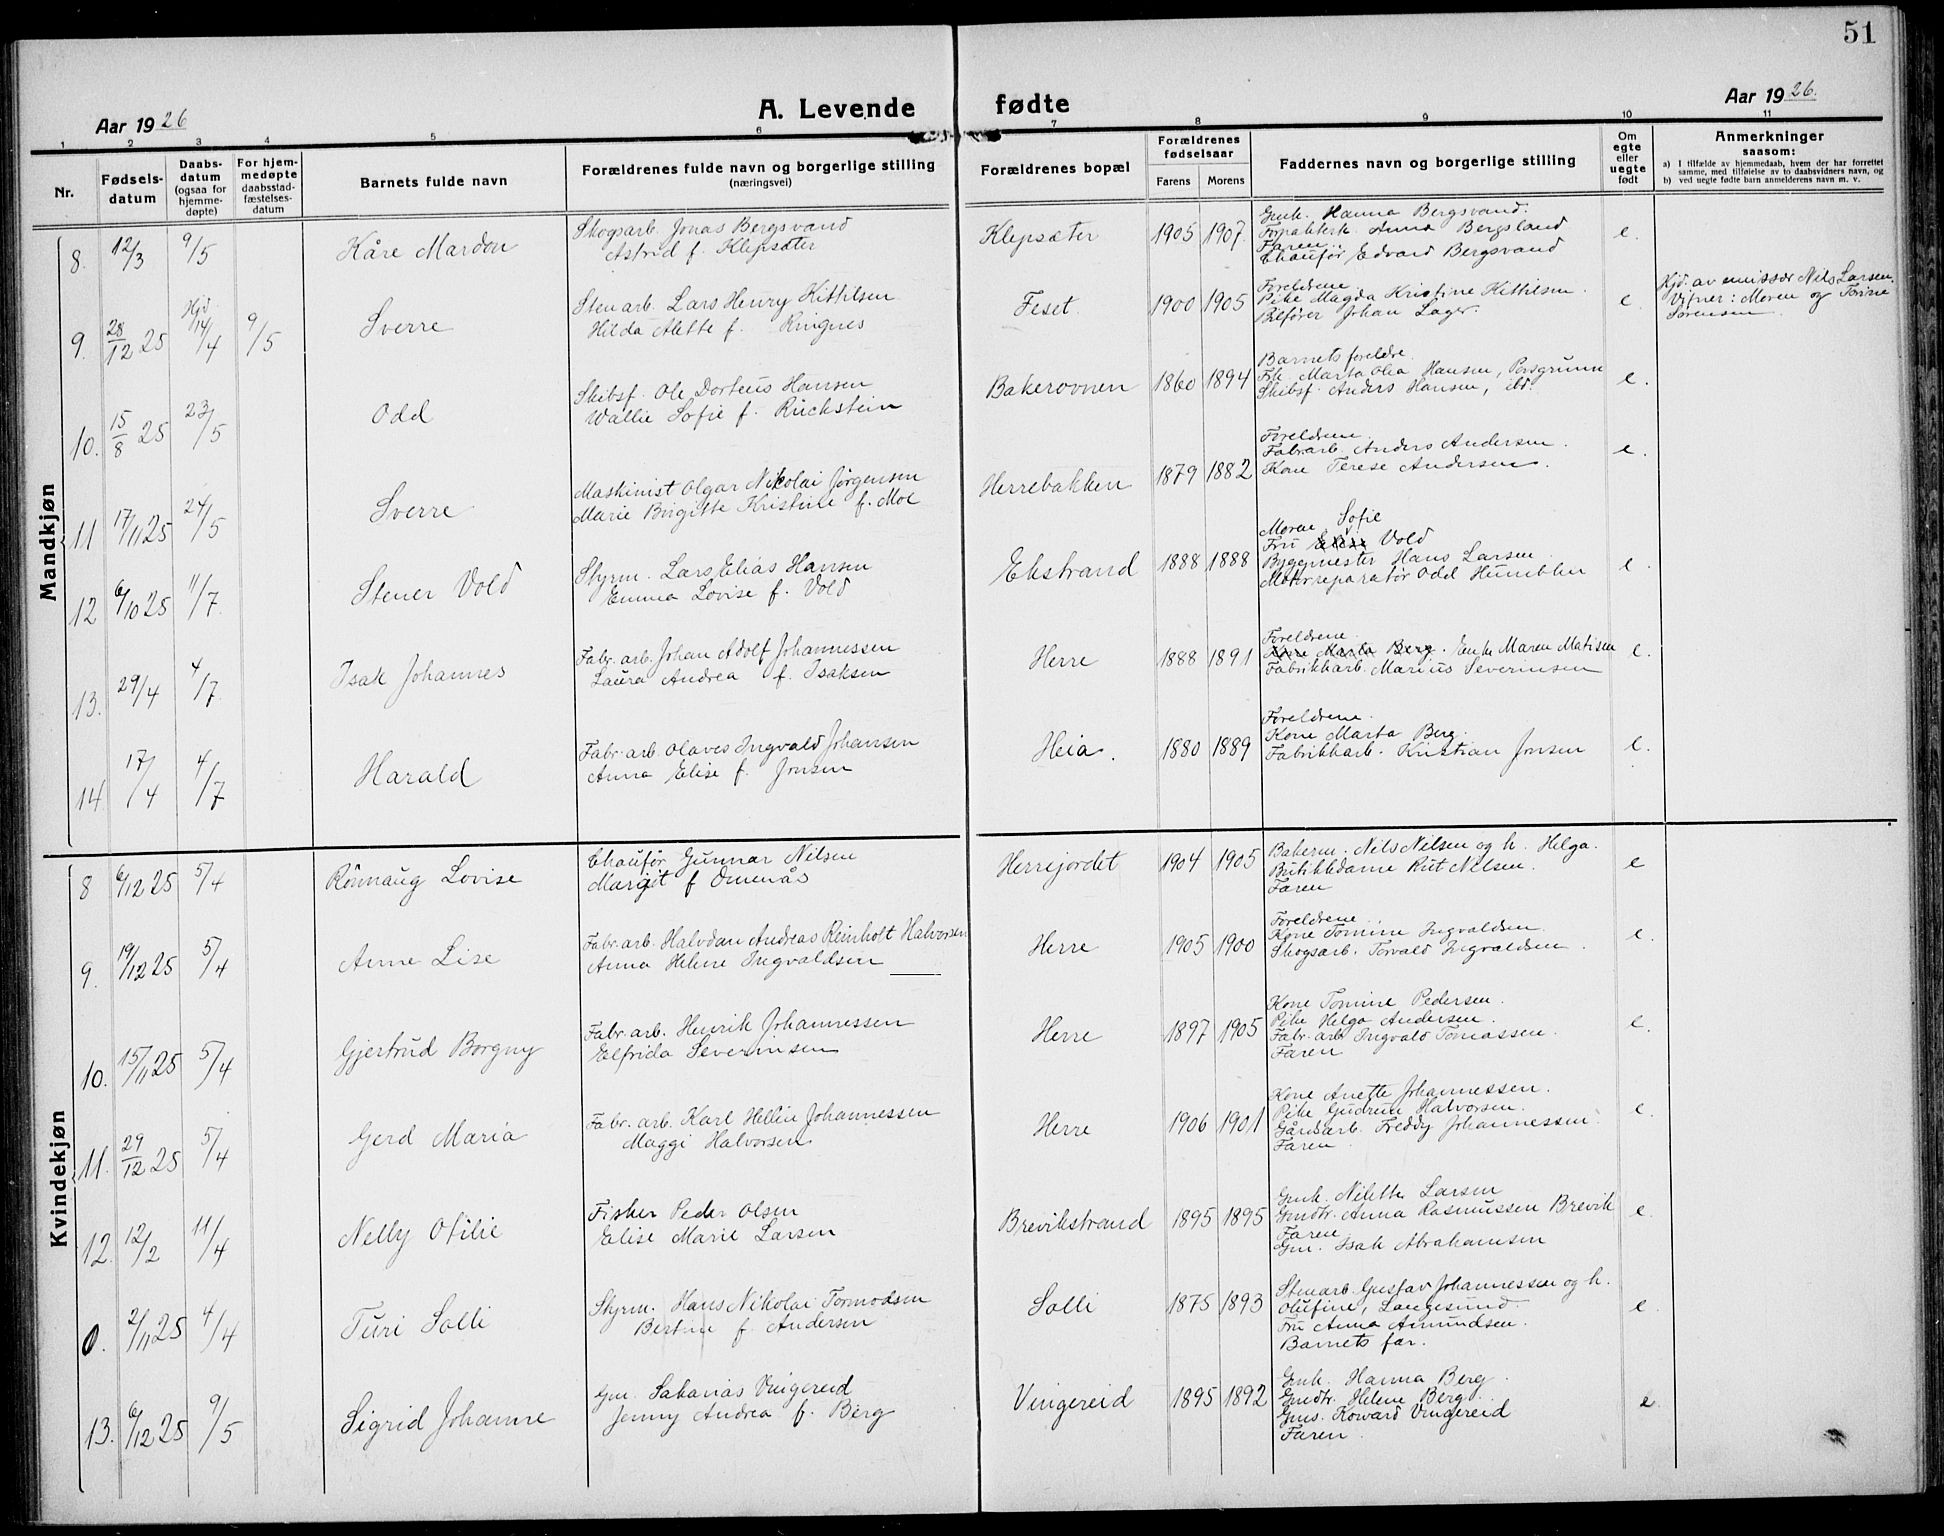 51
Aar 1926
A. Levende fødte
Aar 1926.
1 2 3 4 5 6 7 8 9 10 11
Nr.
Fødsels-
datum
Daabs-
datum
(ogsaa for
hjemme-
døpte)
For hjem-
medøpte
daabsstad-
fæstelses-
datum
Barnets fulde navn
Forældrenes fulde navn og borgerlige stilling
(næringsvei)
Forældrenes bopæl
Forældrenes
fødselsaar
Farens
Morens
Faddernes navn og borgerlige stilling
Om
egte
eller
uegte
født
Anmerkninger
saasom:
a) I tilfælde av hjemmedaab, hvem der har forrettet
samme, med tilføielse av to daabsvidners navn, og
b) ved uegte fødte barn anmelderens navn m. v.
Mandkjøn
8. 12/3 9/5
Kåre Mardon
Skogsarb. Jonas Bergsvand
Astrid f. Klepsæter
Klepsæter
1905 1907.
Gmk. Hanna Bergsvand.
Forpakterk. Anna Bergsland
Faren.
Chaufør Edvard Bergsvand
e.
9. 28/12 25 Hjd 14/4 9/5
Sverre
Stenarb. Lars Henry Kittilsen
Hilda Alette f. Ringnes
Feset.
1900 1905
Foreldrene
Pike Magda Kristine Kittilsen.
Bilfører Johan Lager.
e.
Hjd. av emissær Nils Larsen.
Vitner: Moren og Torine
Sørensen.
10. 15/8 25 23/5
Odd
Skibsf. Ole Dorteus Hansen
Wallie Sofie f. Ruckstein
Bakerovnen
1860 1894
Barnets foreldre
Frk. Marta Olea Hansen, Porsgrunn
Skibsf. Anders Hansen, ibd.
e.
11 17/11 25 24/5
Sverre
Maskinist Olgar Nikolai Jørgensen
Marie Birgitte Kristine f. Moe
Herrebakken
1879 1882
Foreldrene.
Fabr.arb. Anders Andersen.
Kone Terese Andersen.
e.
12 6/10 25 11/7.
Stener Vold
Styrm. Lars Elias Hansen
Emma Lovise f. Vold
Ekstrand
1888 1888
Moren. Sofie
Fru Vold
Byggmester Hans Larsen
Motorreparatør Odd Humblen
e.
13. 29/4 4/7.
Isak Johannes
Fabr. arb. Johan Adolf Johannessen
Laura Andrea f. Isaksen
Herre
1888 1891
Foreldrene.
Kone Marta Berg. Enke Maren Matisen
Fabrikkarb. Marius Severinsen
e.
14 17/4 4/7
Harald
Fabr. arb. Olaves Ingvald Johansen
Anna Elise f. Jonsen
Heia.
1880 1889
Foreldrene.
Kone Marta Berg.
Fabrikkarb. Kristian Jonsen
e.
Kvindekjøn
8 6/12 25 5/4
Rönnaug Lovise
Chaufør Gunnar Nilsen
Margit f Omenås
Herrejordet
1904 1905
Bakerm. Nils Nilsen og h. Helga.
Butikkdame Rut Nilsen.
Faren
e
9. 19/12 25 5/4
Anne Lise
Fabr. arb. Halvdan Andreas Reinholt Halvorsen
Anna Helene Ingvaldsen
Herre
1905 1900
Foreldrene
Kone Tomine Ingvaldsen.
Skogsarb. Torvald Ingvaldsen.
e.
10. 15/11 25 5/4
Gjertrud Borgny
Fabr. arb. Henrik Johannessen
Elfrida Severinsen
Herre
1897 1905
Kone Tomine Pedersen.
Pike Helga Andersen.
Fabr. arb Ingvald Tomassen.
Faren
e.
11. 29/12 25 5/4
Gerd Maria
Fabr. arb. Karl Johannessen
Maggi Halvorsen
Herre
1906 1901
Kone Anette Johannessen.
Pike Gudrun Halvorsen.
Gårdsarb. Freddy Johannessen.
Faren
e.
12. 12/2 11/4
Nelly Otilie
Fisker Peder Olsen
Elise Marie Larsen
Brevikstrand
1895 1895
Gmk. Nilette Larsen
Gmdtr. Anna Rasmussen Brevik
Faren
Gm. Isak Abrahamsen
e.
0. 2/11 25 4/4
Turi Solli
Styrm. Hans Nikolai Tormodsen
Bertine f. Andersen
Solli
1875 1893
Stenarb. Gustav Johannessen og h.
Olufine, Langesund.
Fru Anna Amundsen.
Barnets far.
e
13. 6/12 25 9/5
Sigrid Johanne
Gm. Sakarias Vingereid
Jenny Andrea f. Berg
Vingereid
1895 1892
Gmk. Hanna Berg.
Gmdtr. Helene Berg.
Gms. Howard Vingereid
Faren.
e.